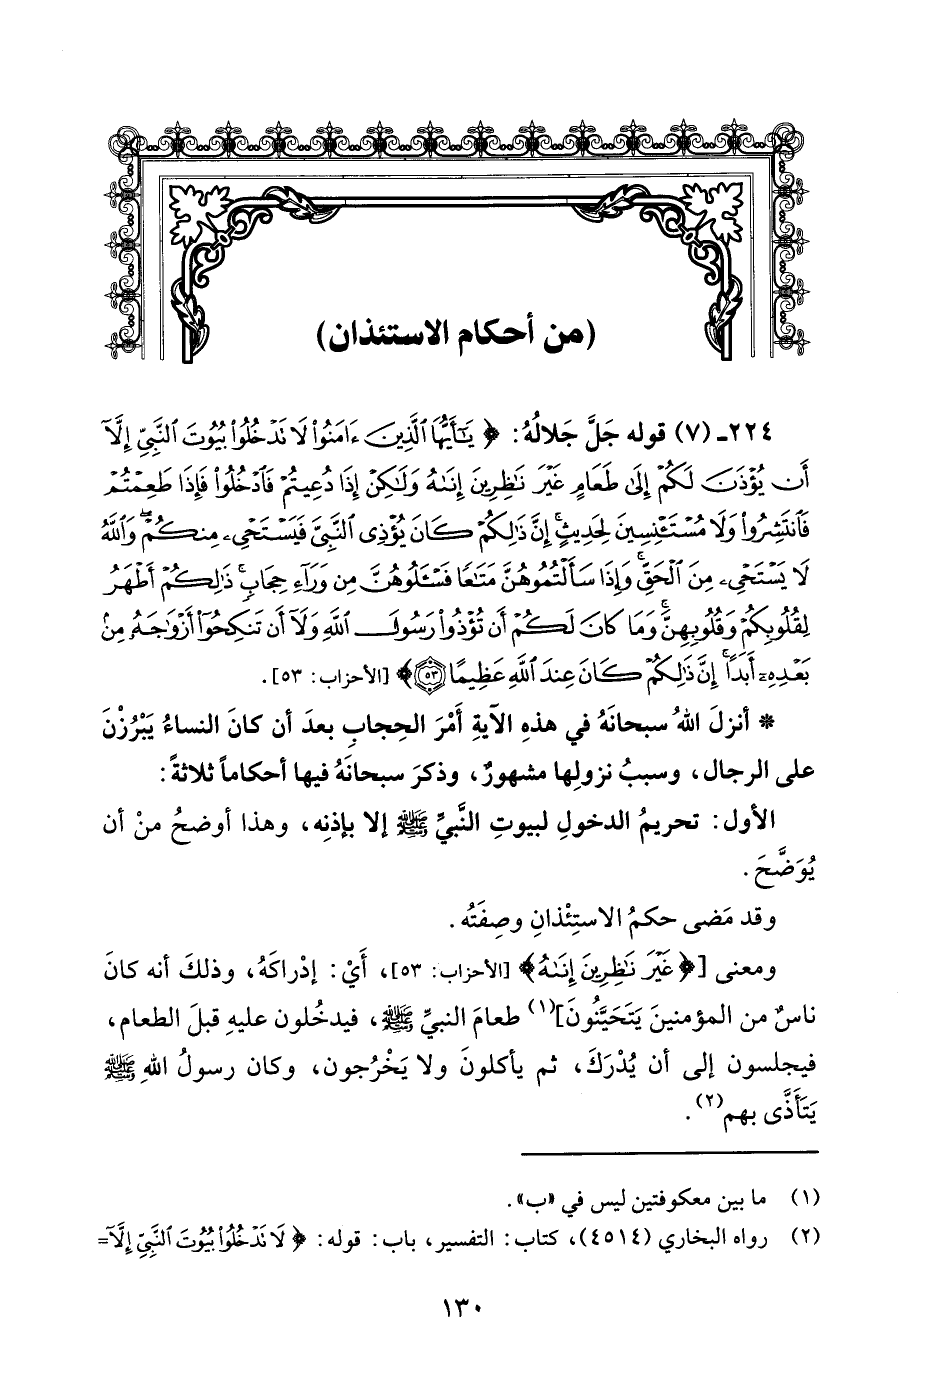 (من أحكام الاستئذان)
٢٢٤ـ (٧) قوله جَلَّ جَلالُهُ: ﴿ يَٰٓأَيُّهَا ٱلَّذِينَ ءَامَنُوا۟ لَا تَدْخُلُوا۟ بُيُوتَ ٱلنَّبِيِّ إِلَّآ
أَن يُؤْذَنَ لَكُمْ إِلَىٰ طَعَامٍ غَيْرَ نَٰظِرِينَ إِنَىٰهُ وَلَٰكِنْ إِذَا دُعِيتُمْ فَٱدْخُلُوا۟ فَإِذَا طَعِمْتُمْ
فَٱنتَشِرُوا۟ وَلَا مُسْتَـْٔنِسِينَ لِحَدِيثٍ ۚ إِنَّ ذَٰلِكُمْ كَانَ يُؤْذِى ٱلنَّبِيَّ فَيَسْتَحْىِۦ مِنكُمْ ۖ وَٱللَّهُ
لَا يَسْتَحْىِۦ مِنَ ٱلْحَقِّ ۚ وَإِذَا سَأَلْتُمُوهُنَّ مَتَٰعًا فَسْـَٔلُوهُنَّ مِن وَرَآءِ حِجَابٍ ۚ ذَٰلِكُمْ أَطْهَرُ
لِقُلُوبِكُمْ وَقُلُوبِهِنَّ ۚ وَمَا كَانَ لَكُمْ أَن تُؤْذُوا۟ رَسُولَ ٱللَّهِ وَلَآ أَن تَنكِحُوٓا۟ أَزْوَٰجَهُۥ مِنۢ
بَعْدِهِۦٓ أَبَدًا ۚ إِنَّ ذَٰلِكُمْ كَانَ عِندَ ٱللَّهِ عَظِيمًا ٥٣﴾ [الأحزاب: ٥٣].
* أنزلَ اللهُ سبحانَهُ في هذهِ الآيةِ أَمْرَ الحِجابِ بعدَ أن كانَ النساءُ يَبْرُزْنَ
على الرجال، وسببُ نزولِها مشهورٌ، وذكرَ سبحانَهُ فيها أحكاماً ثلاثةً:
الأول: تحريمُ الدخولِ لبيوتِ النَّبيِّ ﷺ إلا بإذنِه، وهذا أوضحُ منْ أن
يُوَضَّحَ.
وقد مَضى حكمُ الاستِئْذانِ وصِفَتُه.
ومعنى [﴿ غَيْرَ نَٰظِرِينَ إِنَىٰهُ﴾ [الأحزاب: ٥٣]، أَيْ: إدْراكَهُ، وذلكَ أنه كانَ
ناسٌ من المؤمنينَ يَتَحَيَّنُونَ](١) طعامَ النبيِّ ﷺ، فيدخُلون عليهِ قبلَ الطعام،
فيجلسون إلى أن يُدْرَكَ، ثم يأكلونَ ولا يَخْرُجون، وكان رسولُ اللهِ ﷺ
يَتَأَذَّى بهم(٢).
(١) ما بين معكوفتين ليس في «ب».
(٢) رواه البخاري (٤٥١٤)، كتاب: التفسير، باب: قوله: ﴿ لَا تَدْخُلُوا۟ بُيُوتَ ٱلنَّبِيِّ إِلَّآ=
١٣٠